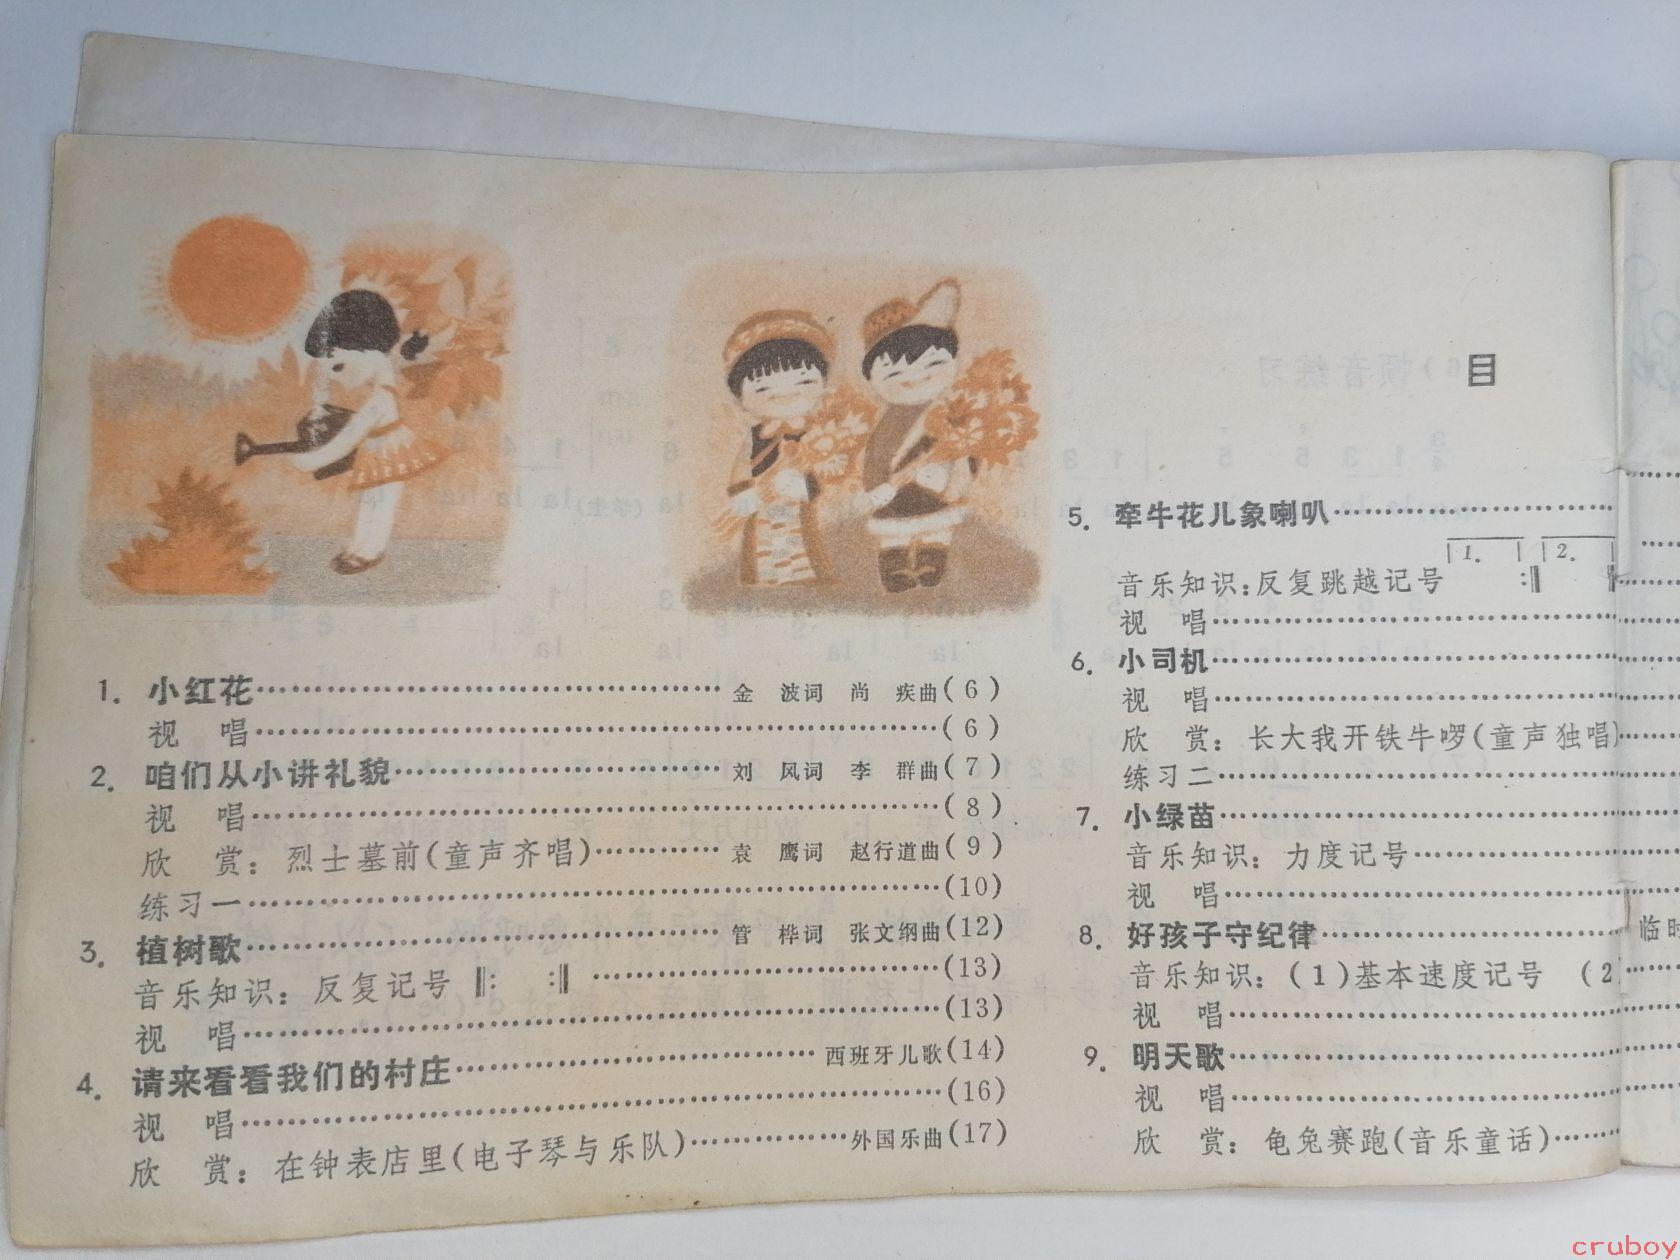 目
1. 小红花……………………金 波词 尚 疾曲(6)
视 唱……………………(6)
2. 咱们从小讲礼貌……………………刘 风词 李 群曲(7)
视 唱……………………(8)
欣 赏：烈士墓前(童声齐唱)…………袁 鹰词 赵行道曲(9)
练习一……………………(10)
3. 植树歌……………………管 桦词 张文纲曲(12)
音乐知识：反复记号 ‖: :‖ ……………………(13)
视 唱……………………(13)
4. 请来看看我们的村庄……………………西班牙儿歌(14)
视 唱……………………(16)
欣 赏：在钟表店里(电子琴与乐队)……………外国乐曲(17)
5. 牵牛花儿象喇叭……………………
音乐知识：反复跳越记号 1. :‖ 2.
视 唱……………………
6. 小司机……………………
视 唱……………………
欣 赏：长大我开铁牛啰(童声独唱)
练习二……………………
7. 小绿苗……………………
音乐知识：力度记号……………
视 唱……………………
8. 好孩子守纪律……………………
音乐知识：(1)基本速度记号 (2
视 唱……………………
9. 明天歌……………………
视 唱……………………
欣 赏：龟兔赛跑(音乐童话)……
临时
cruboy